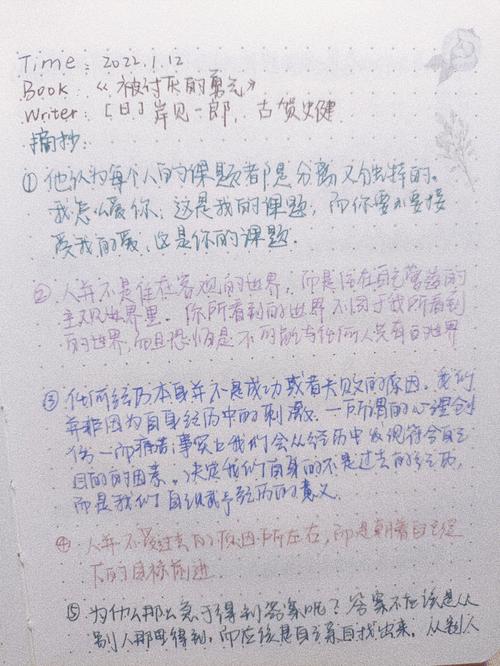 Time：2022.1.12
Book：《被讨厌的勇气》
Writer：[日] 岸见一郎，古贺史健
摘抄：
① 他认为每个人的课题都是分离又独特的。
我怎么爱你，这是我的课题，而你要不要接
受我的爱，这是你的课题．
② 人并不是住在客观的世界，而是住在自己营造的
主观世界里．你所看到的世界不同于我所看到
的世界，而且恐怕是不可能与任何人共有的世界
③ 任何经历本身并不是成功或者失败的原因。我们
并非因为自身经历中的刺激——所谓的心理创
伤——而痛苦，事实上我们会从经历中发现符合自己
目的的因素。决定我们自身的不是过去的经历，
而是我们自己赋予经历的意义．
④ 人并不受过去的原因所左右，而是朝着自己定
下的目标前进
⑤ 为什么那么急于得到答案呢？答案不应该是从
别人那里得到，而应该是自己亲自找出来．从别人